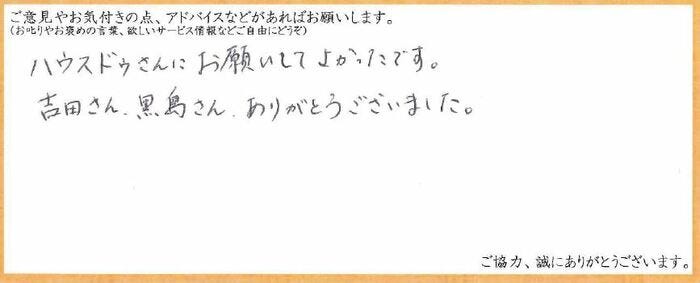 ご意見やお気付きの点、アドバイスなどがあればお願いします。
(お叱りやお褒めの言葉、欲しいサービス情報などご自由にどうぞ)
ハウスドゥさんにお願いしてよかったです。
吉田さん、黒島さん、ありがとうございました。
ご協力、誠にありがとうございます。